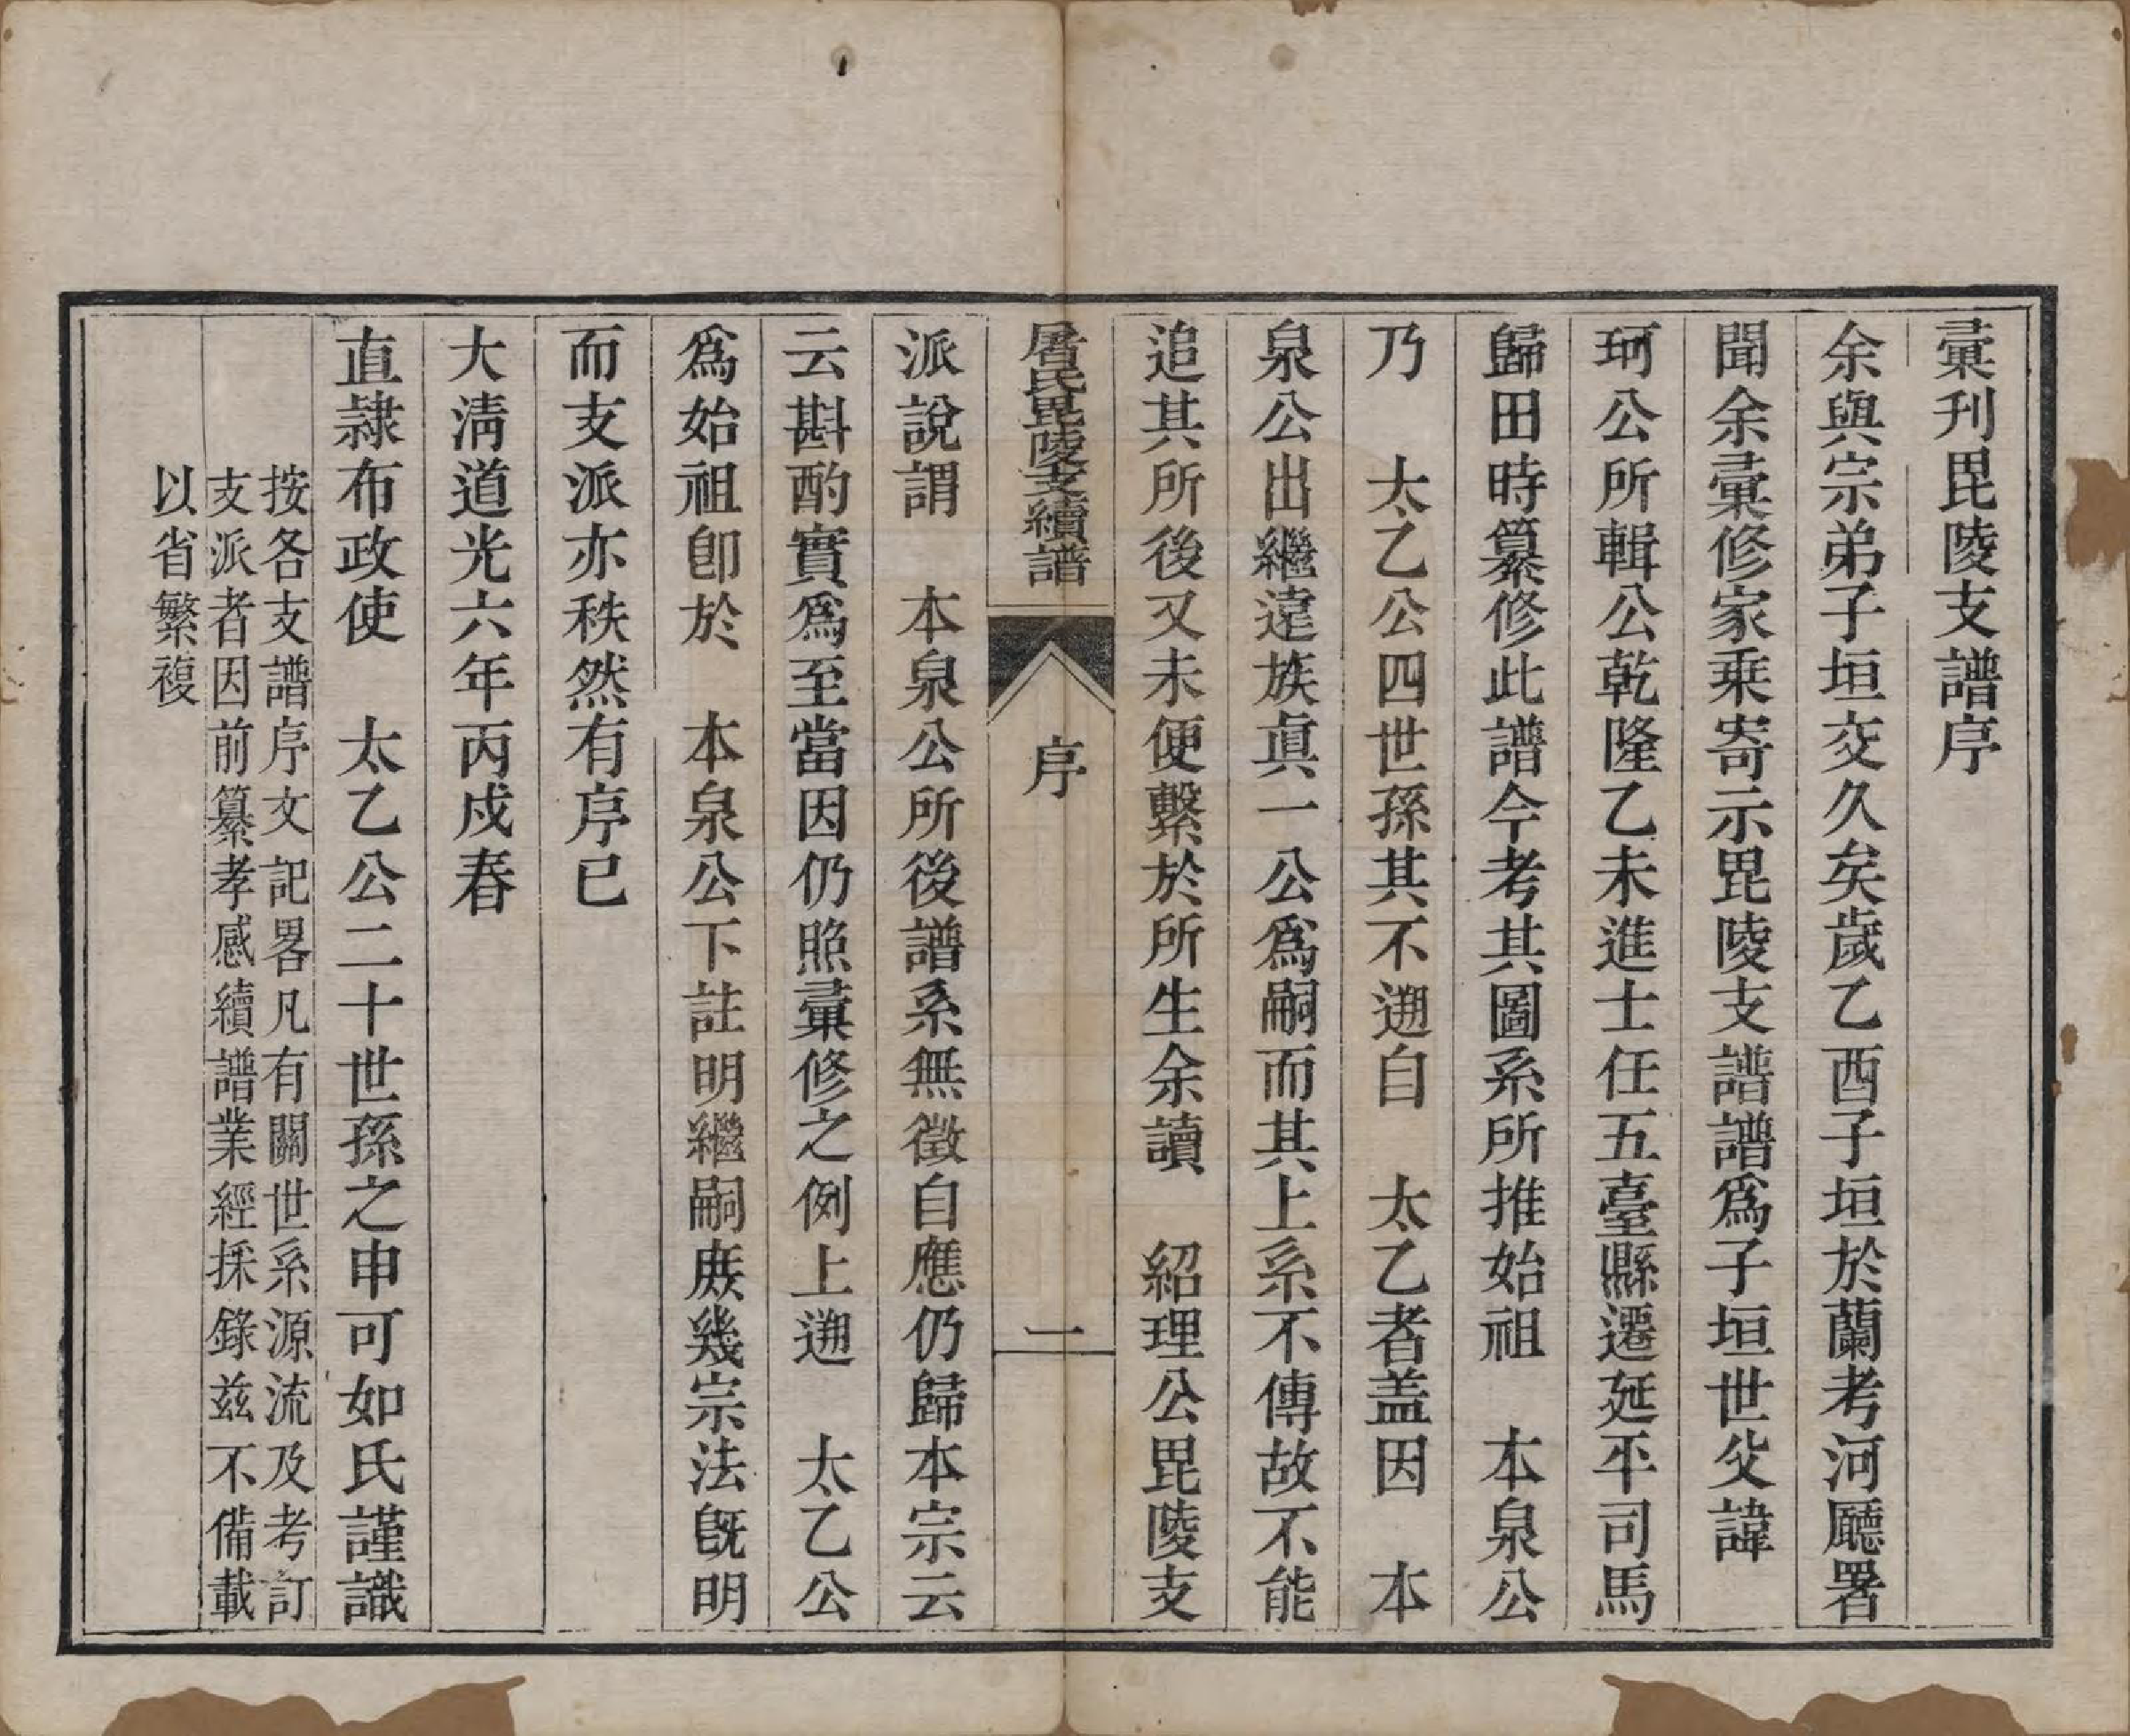 彚刊毘陵支譜序
余與宗弟子垣交久矣歲乙酉子垣於蘭考河廳署
聞余彚修家乗寄示毘陵支譜譜爲子垣世父諱
珂公所輯公乾隆乙未進士任五臺縣遷延平司馬
歸田時纂修此譜今考其圖系所推始祖　本泉公
乃　太乙公四世孫其不遡自　太乙者盖因　本
泉公出繼逺族眞一公爲嗣而其上系不傳故不能
追其所後又未便繫於所生余讀　紹理公毘陵支
屠氏毘陵支續譜　序　一
派說謂　本泉公所後譜系無徵自應仍歸本宗云
云斟酌實爲至當因仍照彚修之例上遡　太乙公
爲始祖卽於　本泉公下註明繼嗣庻幾宗法旣明
而支派亦秩然有序已
大淸道光六年丙戍春
直隷布政使　太乙公二十世孫之申可如氏謹識
按各支譜序文記畧凡有關世系源流及考訂
支派者因前纂孝感續譜業經採錄兹不備載
以省繁複